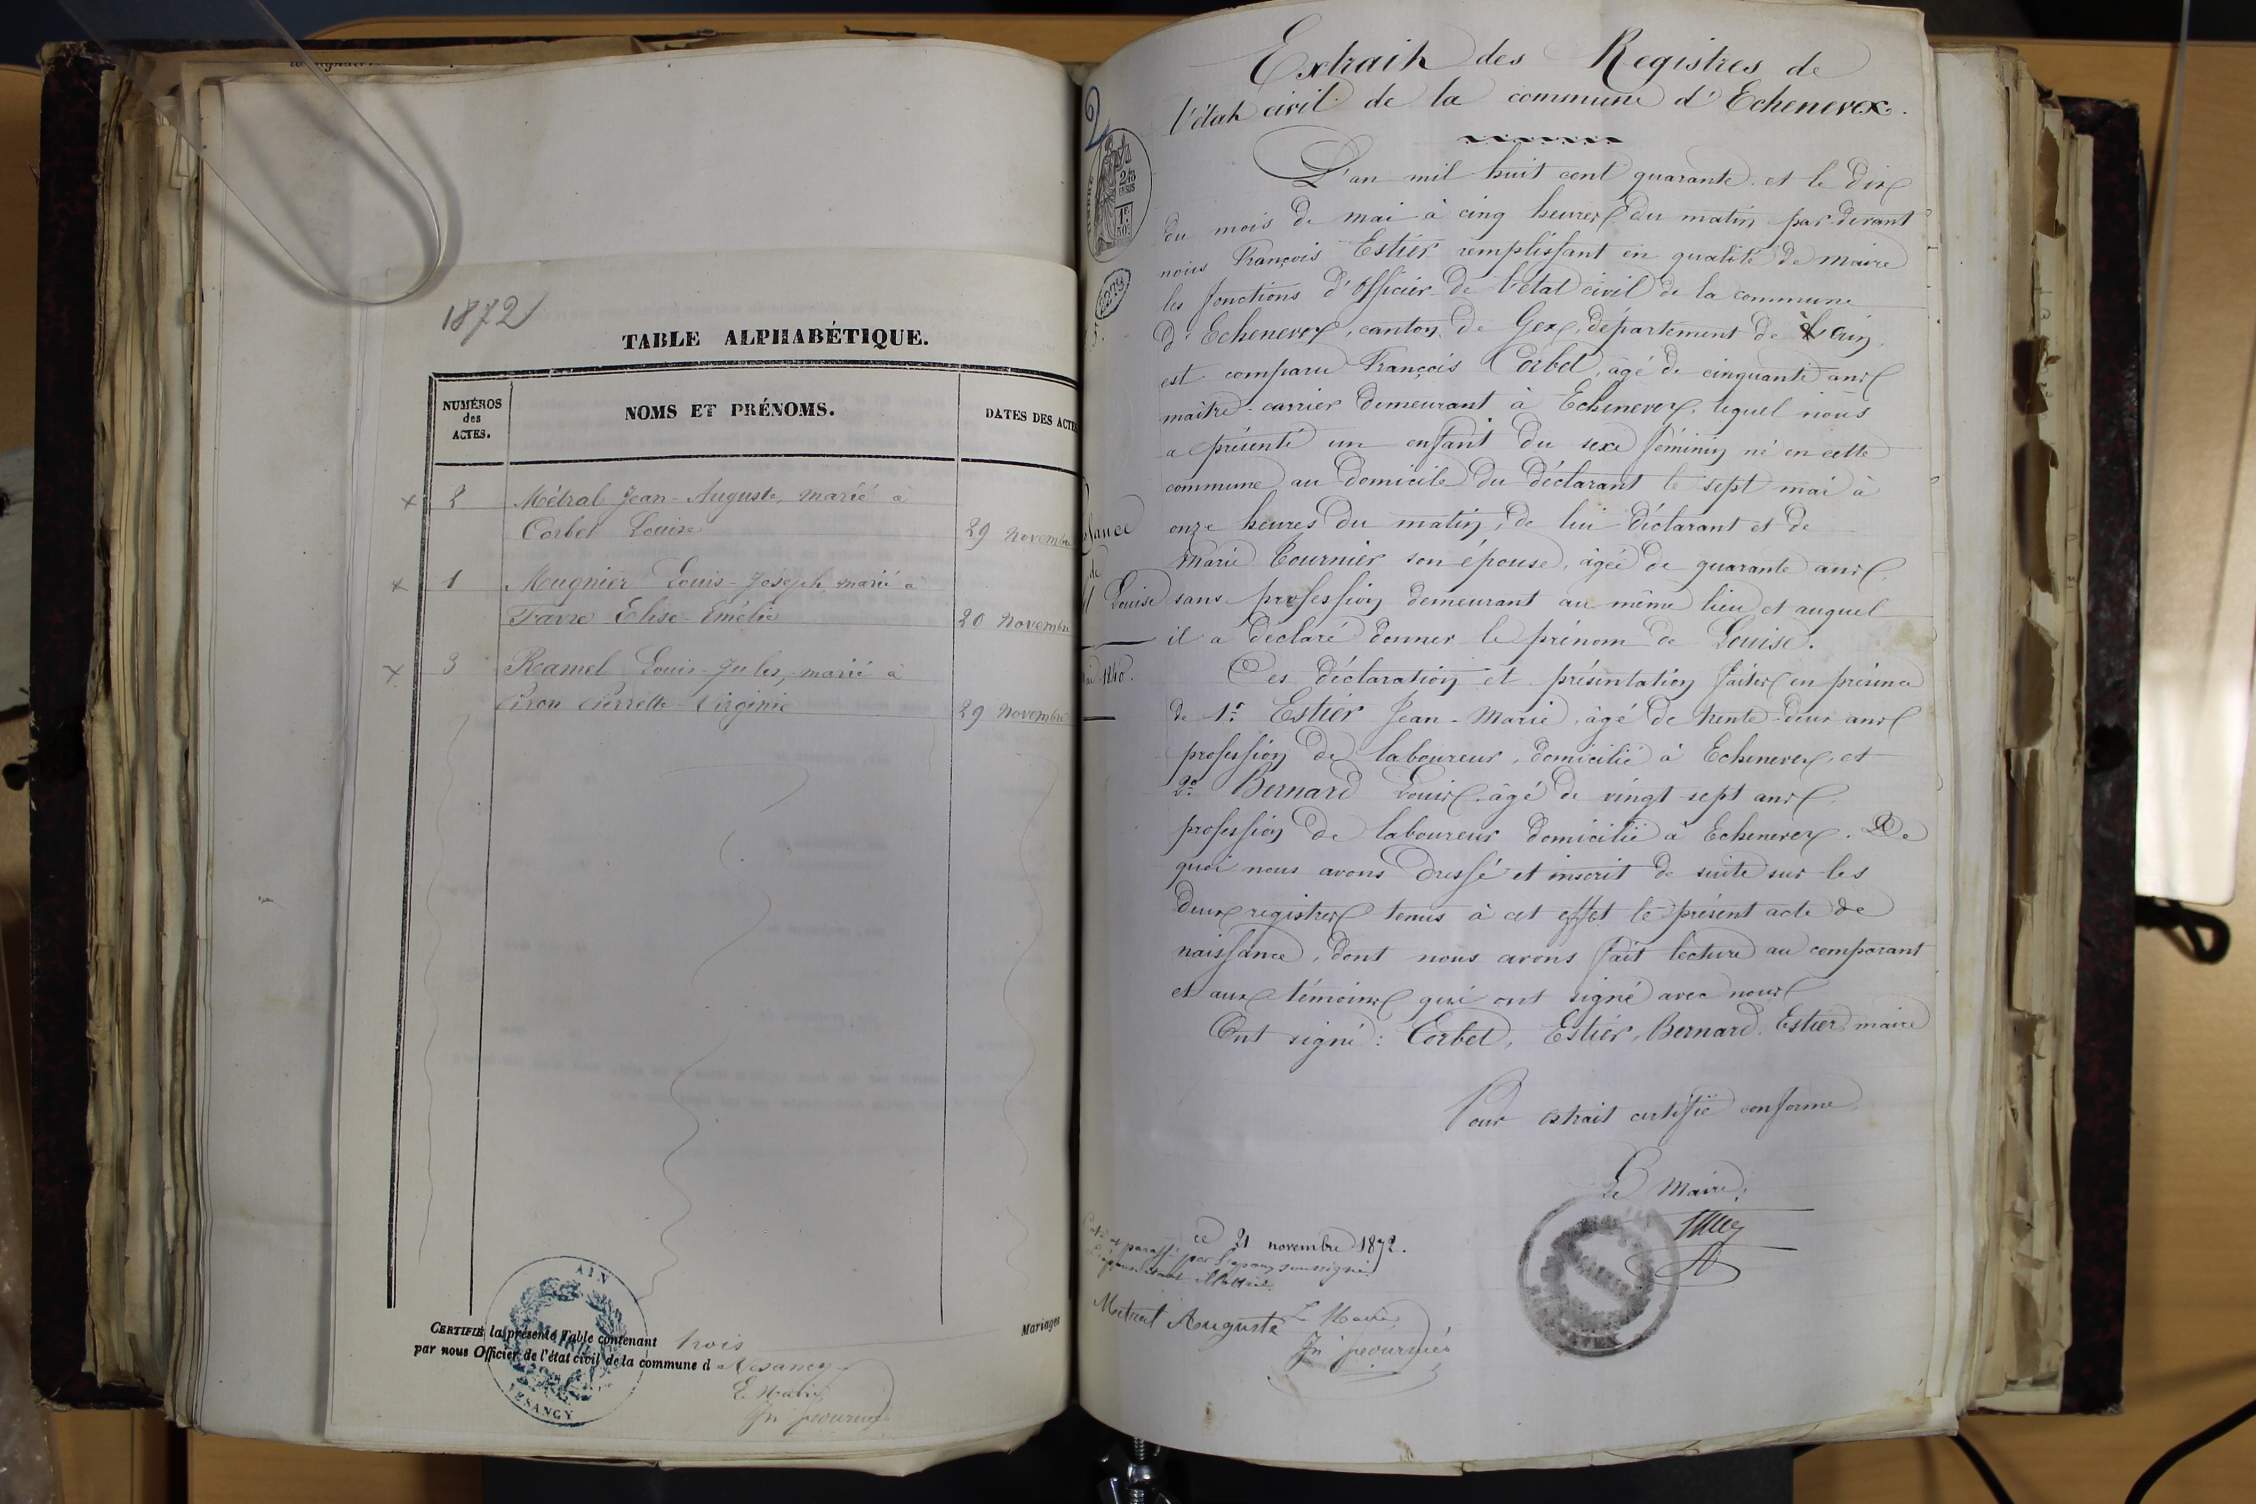 1872
TABLE ALPHABÉTIQUE.
NUMÉROS
des
ACTES.
NOMS ET PRÉNOMS.
DATES DES ACTES
x 2 Métral Jean-Auguste, marié à
Corbet Louise 29 novembre
x 1 Mugnier Louis-Joseph, marié à
Favre Elise-Emélie 20 novembre
x 3 Ramel Louis-Jules, marié à
Piron Pierrette-Virginie 29 novembre
CERTIFIÉ la présente Table contenant trois Mariages
par nous Officier de l'état civil de la commune d Vesancy
Le Maire
AIN
VESANCY
2
Extrait des Registres de
l'état civil de la commune d'Echenevex.
L'an mil huit cent quarante et le dix
du mois de mai à cinq heures du matin par devant
nous François Estier remplissant en qualité de maire
les fonctions d'officier de l'état civil de la commune
d'Echenevex, canton de Gex, département de l'Ain,
est comparu François Corbet, âgé de cinquante ans
maître-carrier demeurant à Echenevex, lequel nous
a présenté un enfant du sexe féminin né en cette
commune au domicile du déclarant le sept mai à
onze heures du matin, de lui déclarant et de
Marie Tournier son épouse, âgée de quarante ans
sans profession demeurant au même lieu et auquel
il a déclaré donner le prénom de Louise.
Ces déclaration et présentation faites en présence
de 1° Estier Jean-Marie, âgé de trente-deux ans
profession de laboureur, domicilié à Echenevex, et
2° Bernard Louis, âgé de vingt-sept ans
profession de laboureur domicilié à Echenevex. De
quoi nous avons dressé et inscrit de suite sur les
deux registres tenus à cet effet le présent acte de
naissance, dont nous avons fait lecture au comparant
et aux témoins qui ont signé avec nous
Ont signé : Corbet, Estier, Bernard, Estier maire
Pour extrait certifié conforme
Le Maire,
ssance
de
Louise
1840.
ce 21 novembre 1872.
par l'époux soussigné
Métral Auguste
Le Maire